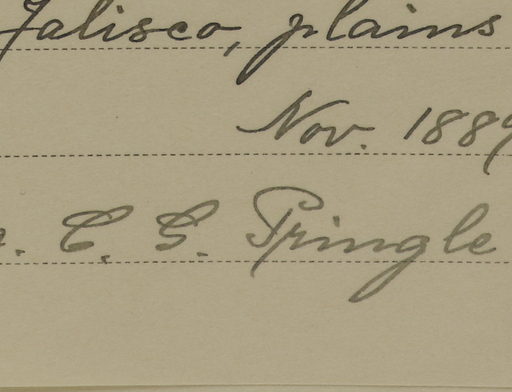 Jalisco, plains
Nov. 1889
C. G. Pringle